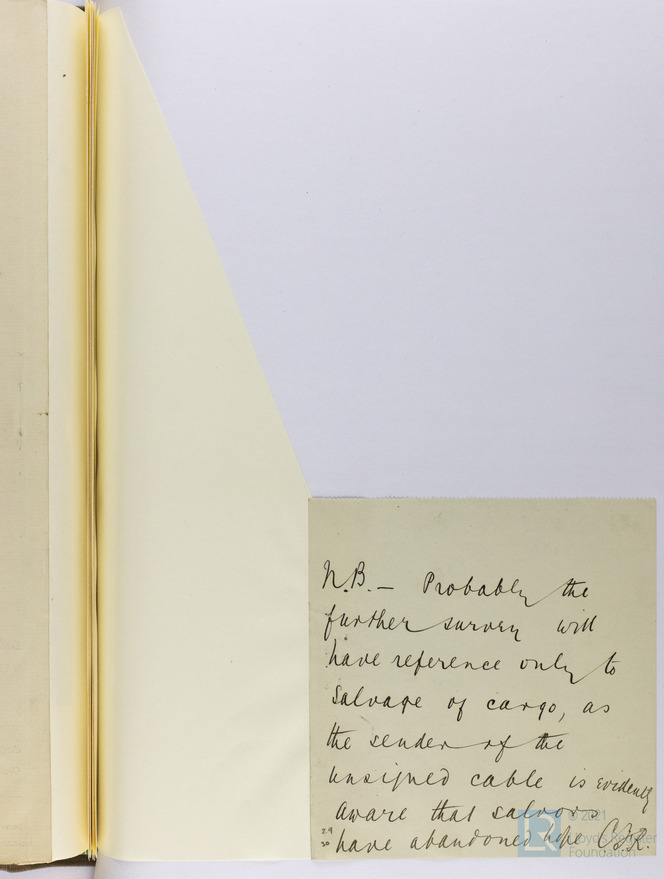 N.B. — Probably the
further survey will
have reference only to
salvage of cargo, as
the sender of the
unsigned cable is evidently
aware that salvors
have abandoned hope
29
30
© 2021
Lloyd's Register
Foundation